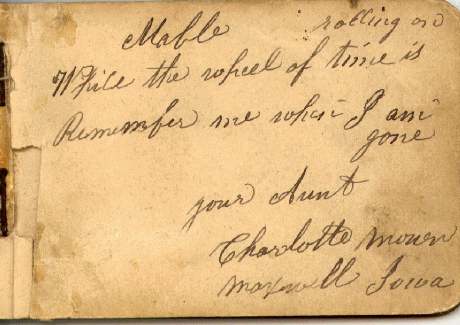 Mable
rolling on
While the wheel of time is
Remember me when I am
gone
your Aunt
Charlotte Mowen
Maxwell Iowa